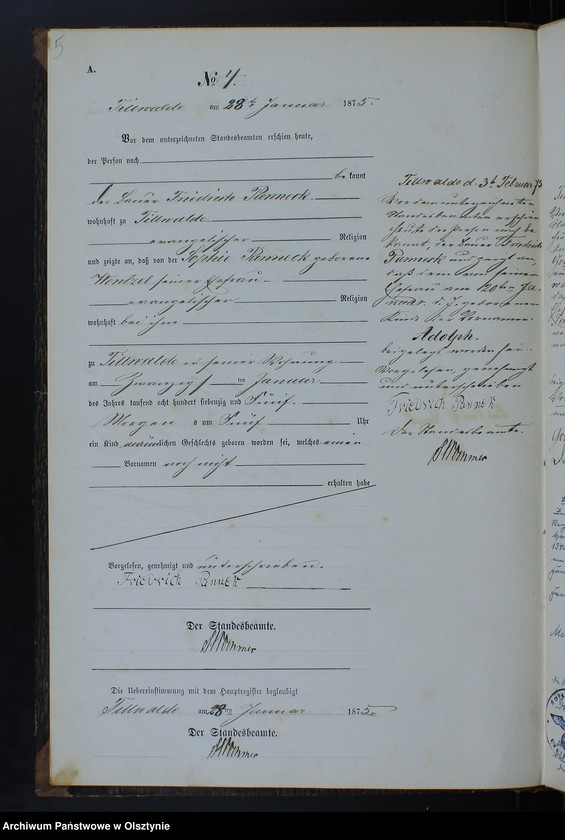 5
A.
No 4.
Tillwalde am 28ten Januar 1875.
Vor dem unterzeichneten Standesbeamten erschien heute,
der Person nach
bekannt
der Bauer Friedrich Penneck.
wohnhaft zu Tillwalde
evangelischer Religion
und zeigte an, daß von der Sophie Penneck geborene
Wenzel seiner Ehefrau
evangelischer Religion
wohnhaft bei ihm
zu Tillwalde in seiner Wohnung
am Zwanzigsten Januar
des Jahres tausend acht hundert siebenzig und Fünf
Morgens um Fünf Uhr
ein Kind männlichen Geschlechts geboren worden sei, welches einen
Vornamen noch nicht
erhalten habe
Vorgelesen, genehmigt und unterschrieben.
Friedrich Pannek
Der Standesbeamte.
Die Uebereinstimmung mit dem Hauptregister beglaubigt
Tillwalde am 28ten Januar 1875
Der Standesbeamte.
Tillwalde d. 3t Februar 75
Vor dem unterzeichneten
Standesbeamten erschien
heute der Person nach be
kannt, der Bauer Friedrich
Penneck und zeigte an,
daß dem von seiner
Ehefrau am 20ten Ja
nuar d. J. geborenen
Kinde der Vorname
Adolph.
beigelegt worden sei.
Vorgelesen, genehmigt
und unterschrieben
Friedrich Pannek
Der Standesbeamte.
Archiwum Państwowe w Olsztynie